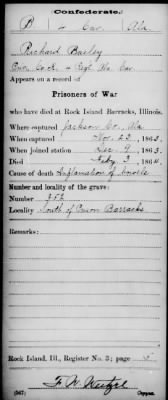 Confederate.
B 4 Cav. Ala.
Richard Bailey
Appears on a record of
Prisoners of War
who died at Rock Island Barracks, Illinois.
Where captured Jackson Co., Ala
When captured Nov. 23, 1863.
When joined station Dec. 9, 1863.
Died Feby. 3, 1864.
Cause of death Inflamation of bowels
Number and locality of the grave:
Number 352
Locality South of Prison Barracks.
Remarks:
Rock Island, Ill., Register No. 3; page 5
(567) Copyist.